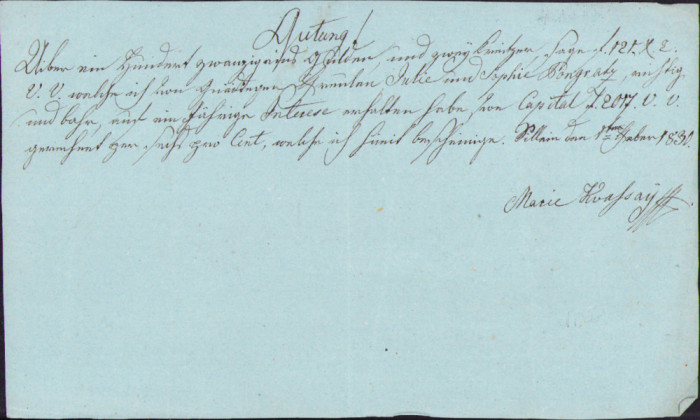 Quitung!
Uiber ein Hundert zwanzig eins Gulden, und zwey kreitzer, sage f. 121. x 2.
V. V. welche ich von Fräulen Julie und Sophie Pongratz, richtig
und bahr, auf ein Jährige Interesse erhalten habe, von Capital f. 2017. V. V.
gerechnet zu sechs pro Cent, welche ich hiemit bescheinige. den 1ten 1830.
Marie Kvassay